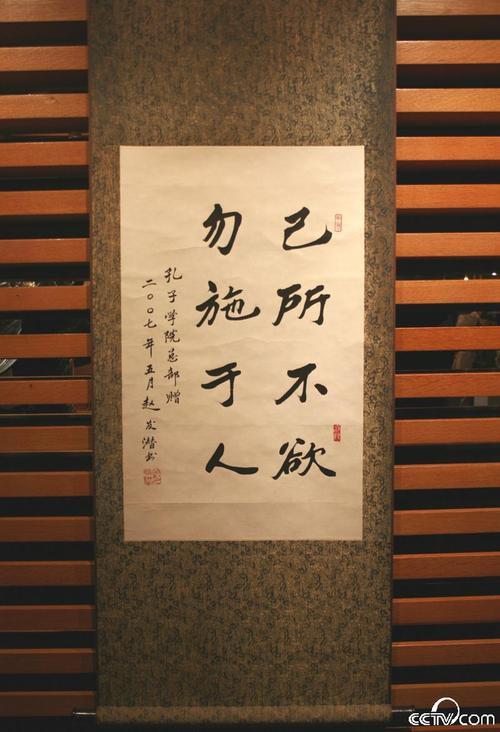 己所不欲
勿施于人
孔子学院总部赠
二〇〇七年五月赵发潜书
CCTV.com